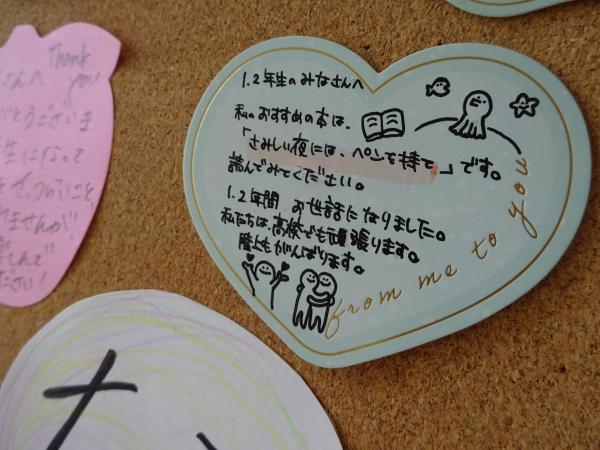 1.2年生のみなさんへ
私のおすすめの本は、
「さみしい夜には、ペンを持て」です。
読んでみてください。
1.2年間 お世話になりました。
私たちは、高校でも頑張ります。
陸上もがんばります。
from me to you
Thank
you
さんへ
がとうございま
生になって
つらいこと、
れませんが
ください!